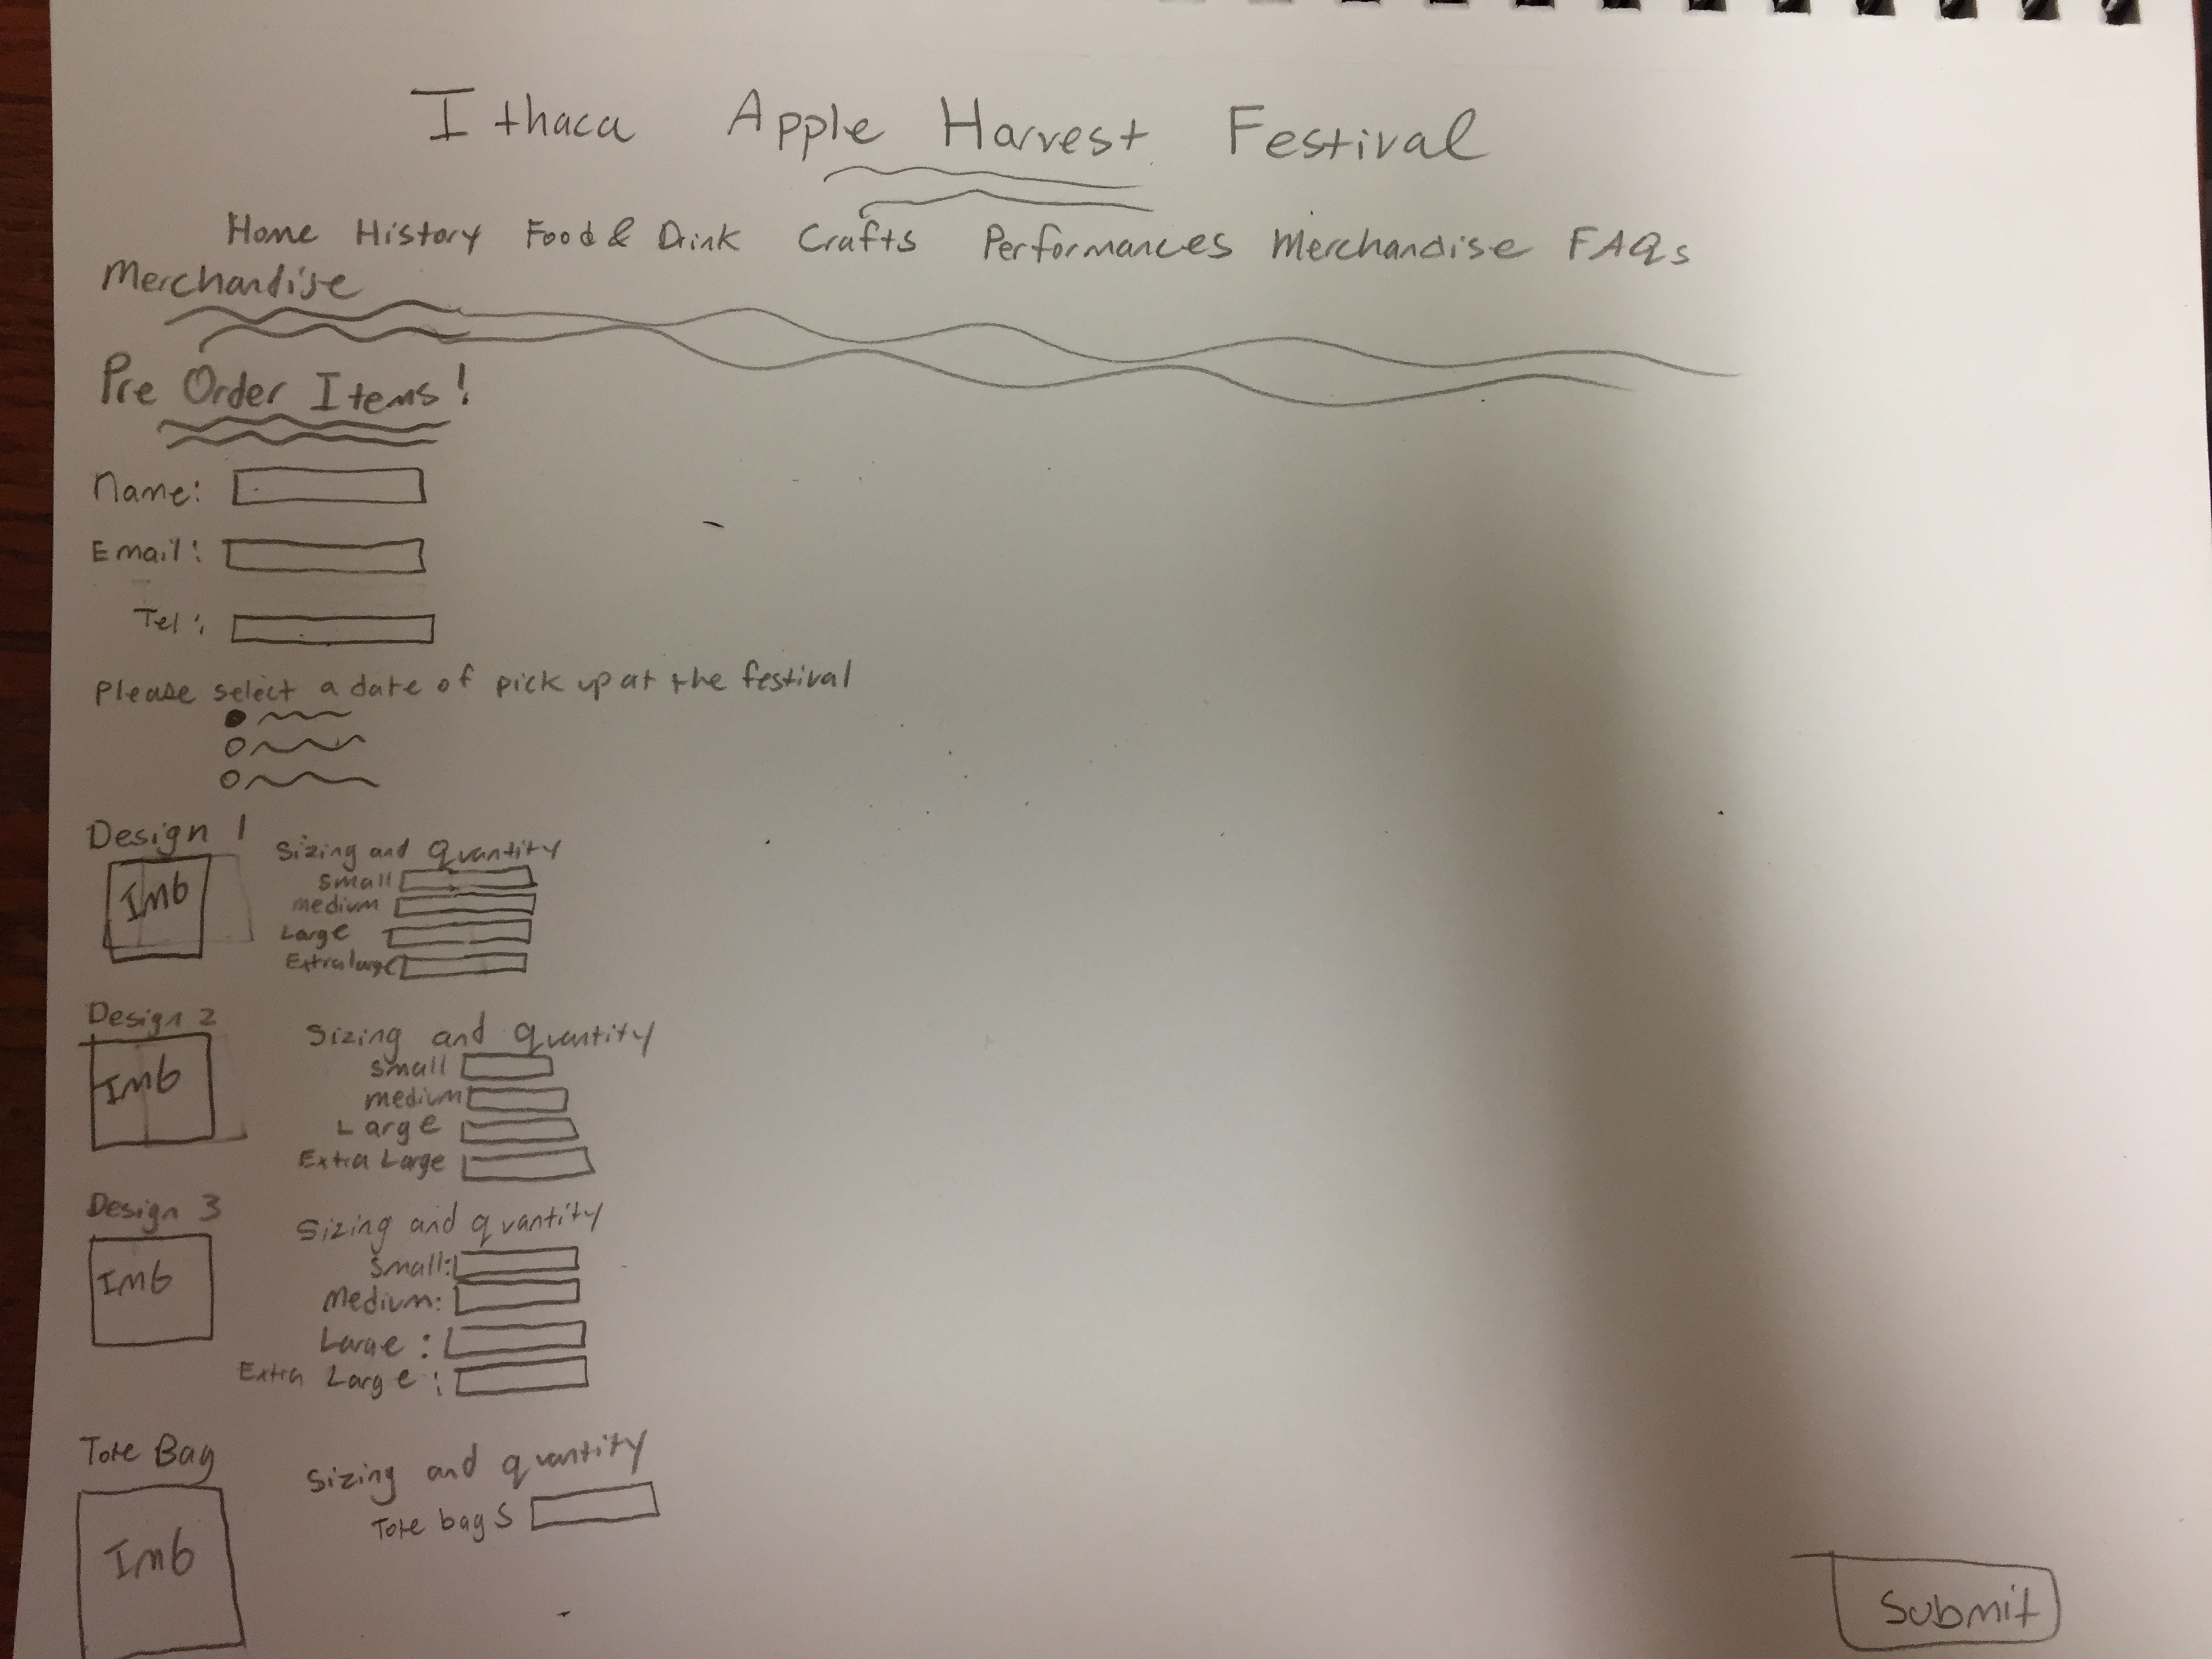 Ithaca Apple Harvest Festival
Home History Food & Drink Crafts Performances Merchandise FAQs
Merchandise
Pre Order Items!
Name:
Email:
Tel:
Please select a date of pick up at the festival
Design 1
Sizing and quantity
IMG
Small
medium
Large
Extra large
Design 2
Sizing and quantity
IMG
Small
medium
Large
Extra Large
Design 3
Sizing and quantity
IMG
Small:
Medium:
Large:
Extra Large:
Tote Bag
Sizing and quantity
Tote bags
IMG
Submit